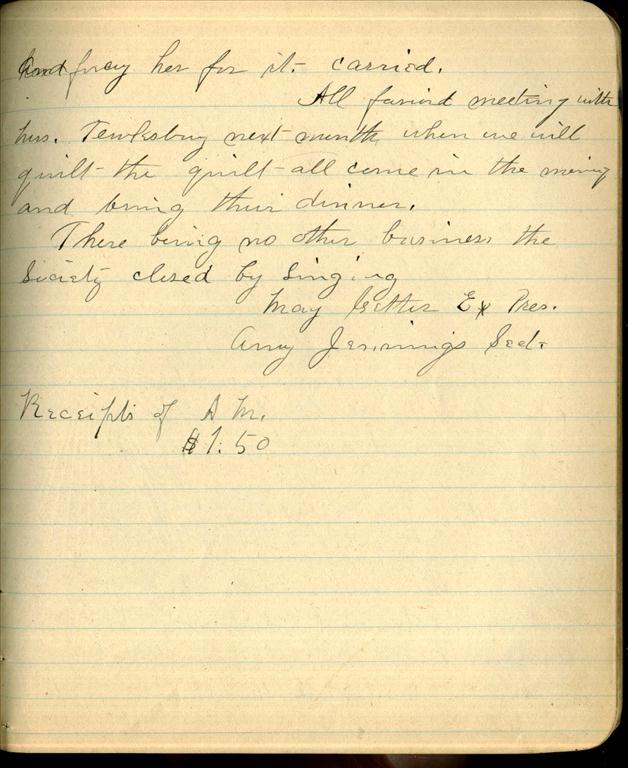 and pay her for it. carried.
All favord meeting with
Mrs. Tewksbury next month when we will
quilt the quilt - all come in the morning
and bring their dinner.
There being no other business the
Society closed by Singing
May Ex Pres.
Amy Jennings Sect.
Receipts of A M.
$1.50